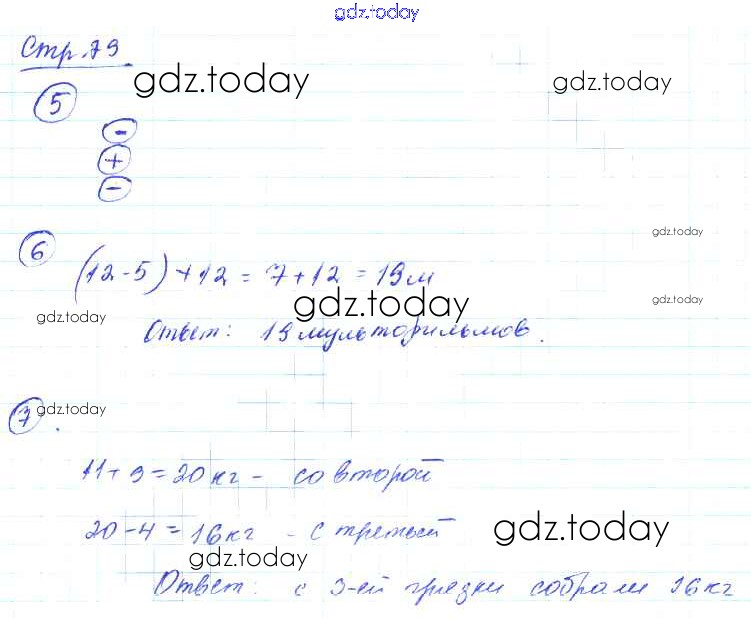 gdz.today
Стр. 79
gdz.today
gdz.today
5
-
+
-
gdz.today
6
(12-5)+12 = 7+12 = 19м
gdz.today
gdz.today
gdz.today
Ответ: 19 мультфильмов.
7.
gdz.today
11+9=20кг - со второй
20-4=16кг - с третьей
gdz.today
gdz.today
Ответ: с 3-ей грядки собрали 16кг